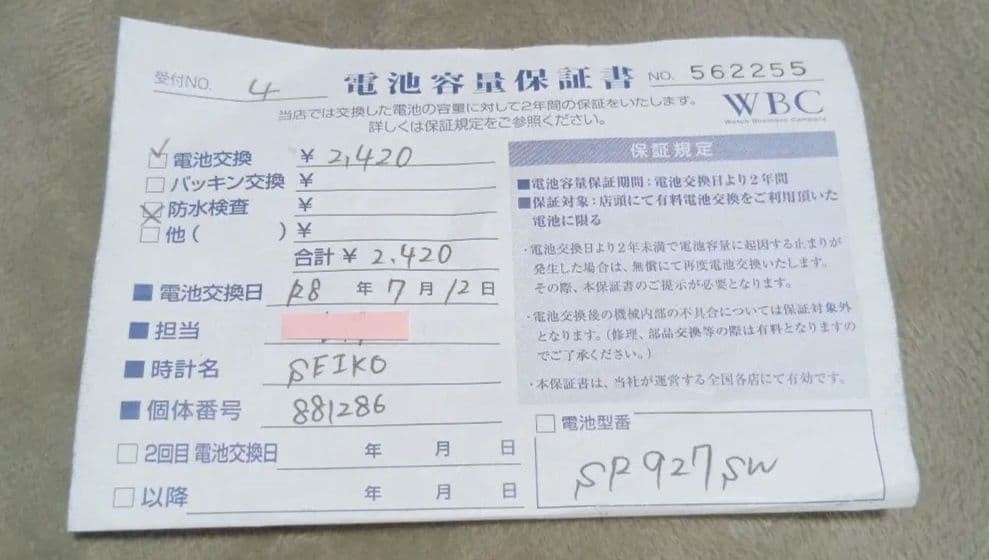 受付NO. 4
電池容量保証書
NO. 562255
当店では交換した電池の容量に対して2年間の保証をいたします。
詳しくは保証規定をご参照ください。
WBC
Watch Business Company
電池交換 ¥ 2,420
パッキン交換 ¥
防水検査 ¥
他( ) ¥
合計 ¥ 2.420
■電池交換日 R8 年 7 月 12 日
■担当
■時計名 SEIKO
■個体番号 881286
2回目 電池交換日 年 月 日
以降 年 月 日
保証規定
■電池容量保証期間:電池交換日より2年間
■保証対象:店頭にて有料電池交換をご利用頂いた
電池に限る
・電池交換日より2年未満で電池容量に起因する止まりが
発生した場合は、無償にて再度電池交換いたします。
その際、本保証書のご提示が必要となります。
・電池交換後の機械内部の不具合については保証対象外
となります。(修理、部品交換等の際は有料となりますの
でご了承ください。)
・本保証書は、当社が運営する全国各店にて有効です。
電池型番
SR927SW